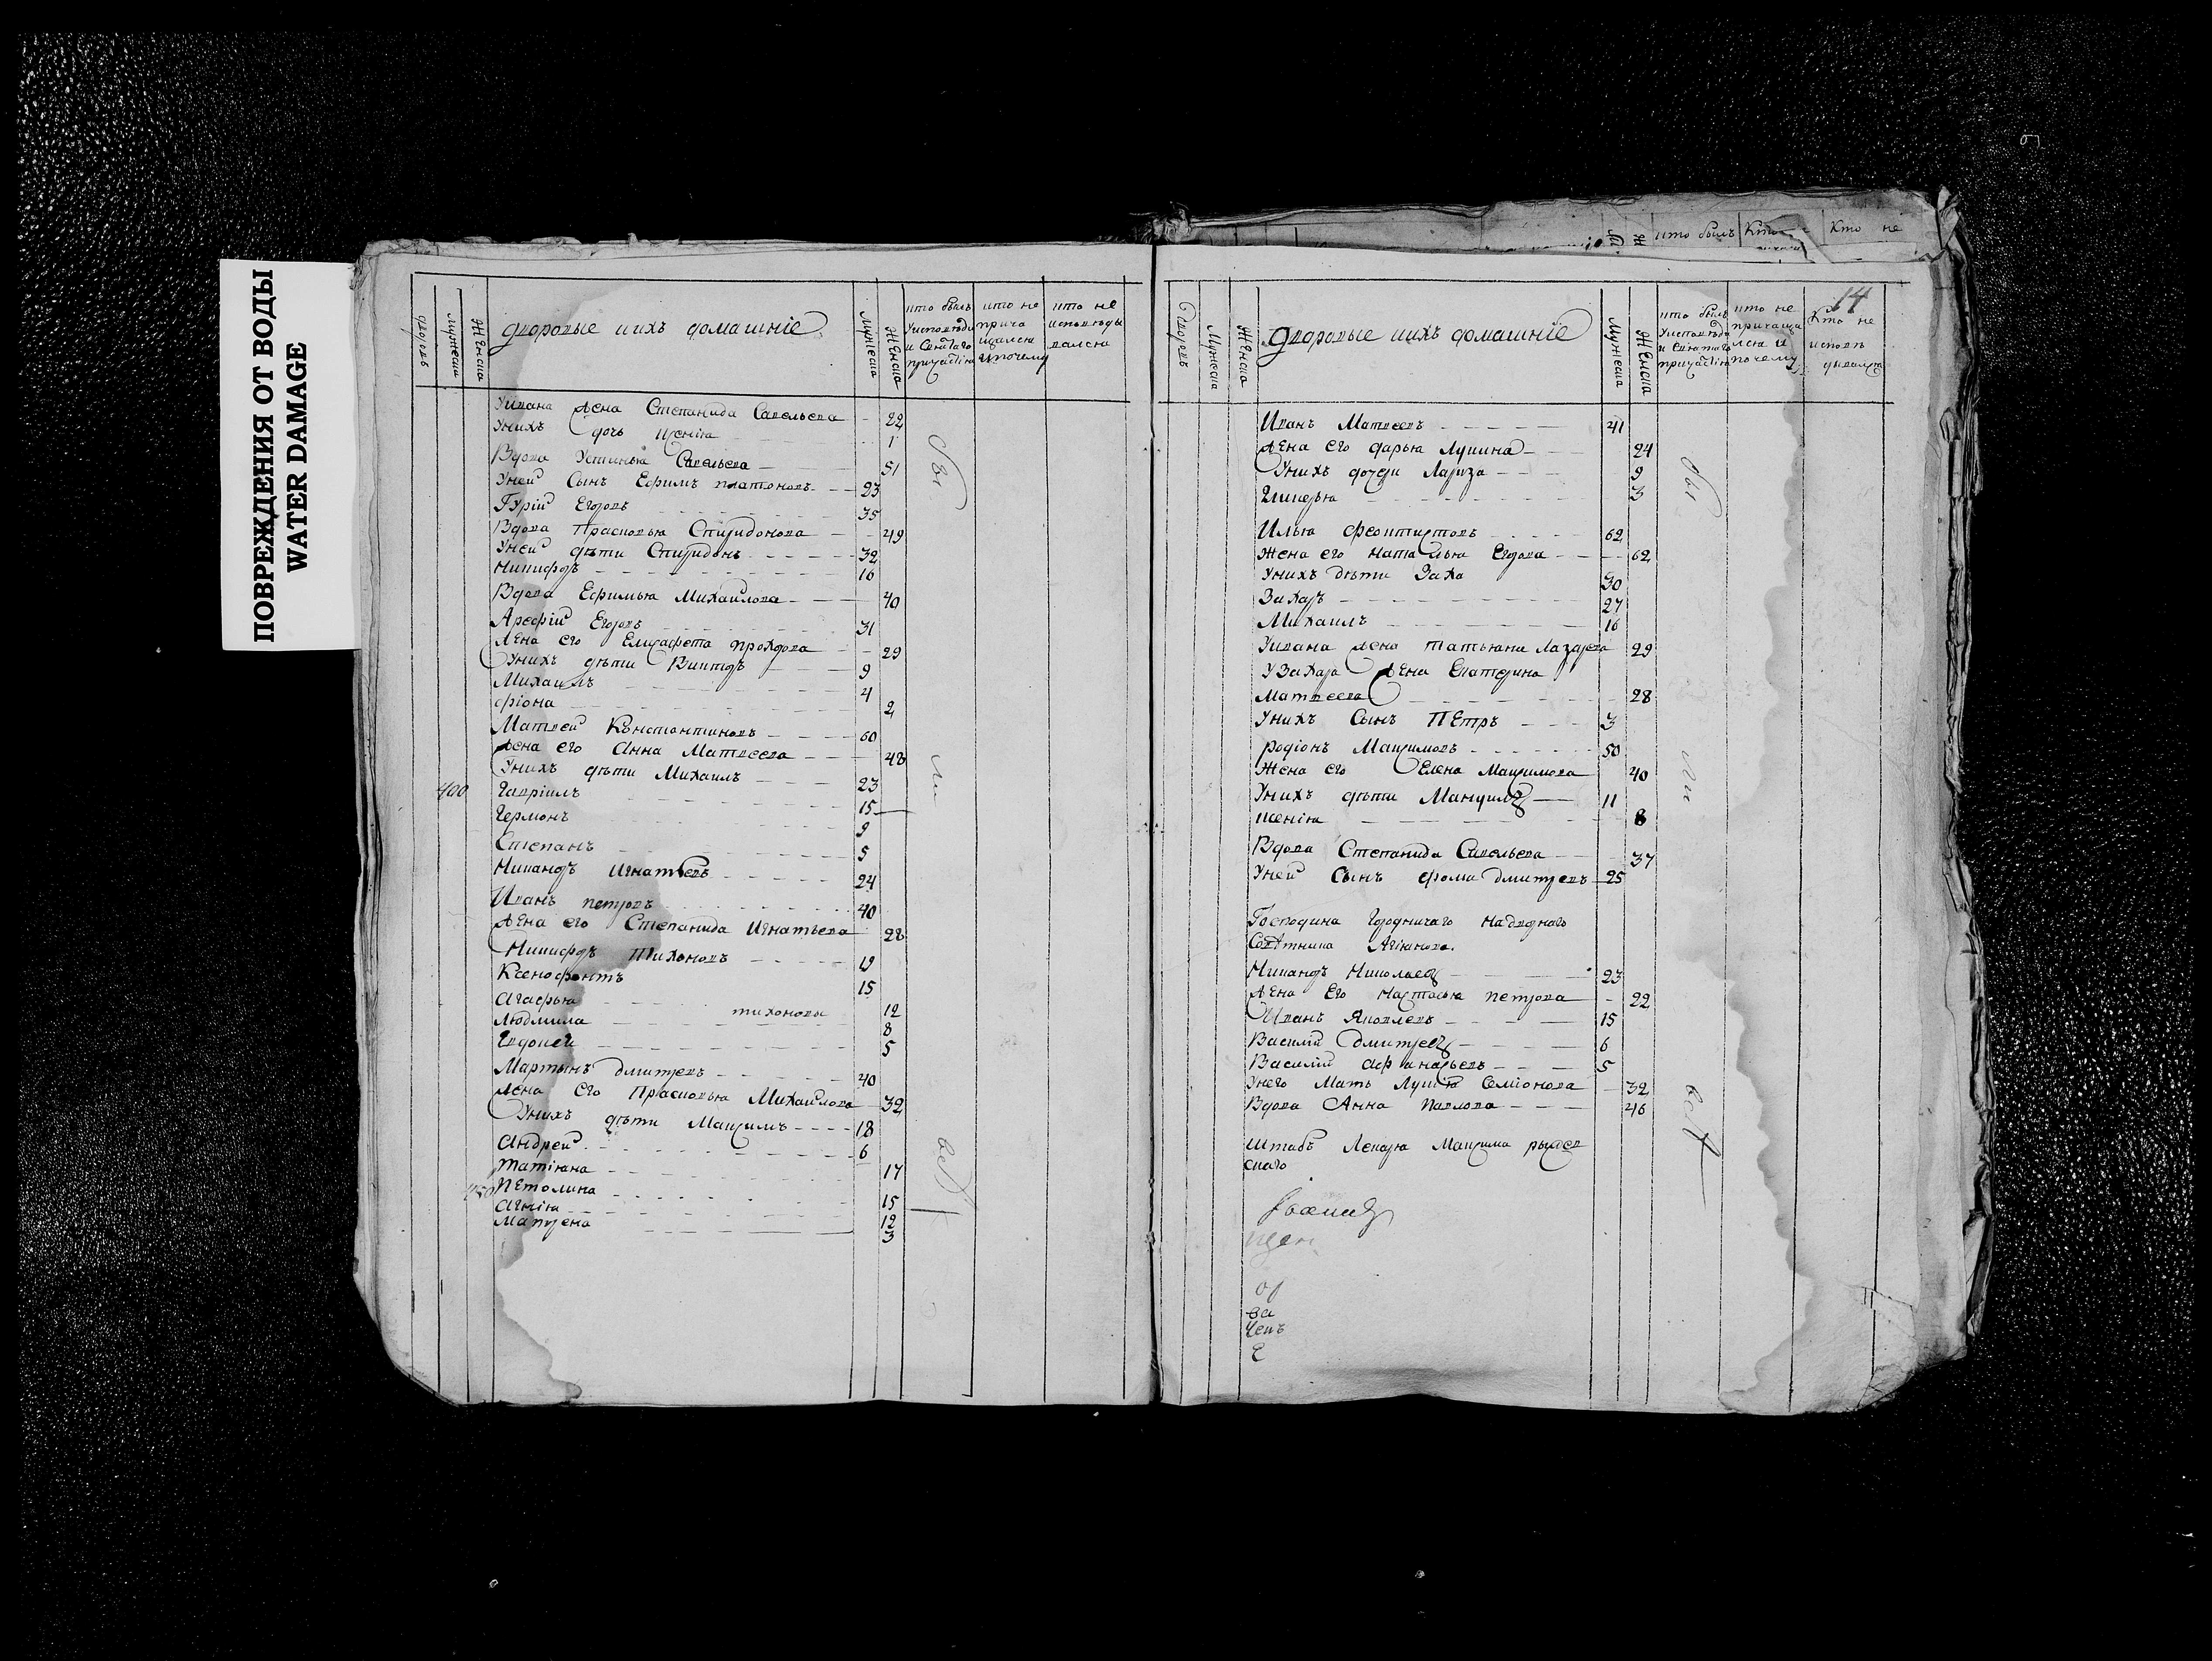 ПОВРЕЖДЕНИЯ ОТ ВОДЫ
WATER DAMAGE
дворовые ихъ домашніе
Мужеска
Женска
Уивана жена Степанида Савельева 22
Унихъ дочь Ксенія 1
Вдова Устинья Савельева 51
Уней Сынъ Ефимъ платоновъ 23
Гурій Егоровъ 35
Вдова Прасковья Спиридонова 49
Уней дѣти Спиридонъ 32
Никифоръ 16
Вдова Ефимья Михайлова 40
Арефій Егоровъ 31
Жена его Елисафета прохорова 29
Унихъ дѣти Викторъ 9
Михаилъ 4
фіона 2
Матвей Констонтиновъ 60
Жена его Анна Матвеева 48
Унихъ дѣти Михаилъ 23
400 Гавріилъ 15
Германъ 9
Степанъ 5
Никаноръ Игнатьевъ 24
Иванъ петровъ 40
Жена его Степанида Игнатьева 28
Никифоръ Тихоновъ 19
Ксенофонтъ 15
Агафья 12
Людмила тихоновы 8
Евдокей 5
Мартынъ дмитревъ 40
Жена Его Прасковья Михайлова 32
Унихъ дѣти Максимъ 18
Андрей 6
Татіяна 17
15
Агнія 12
Матрена 3
14
дворовые ихъ домашніе
Мужеска
Женска
Иванъ Матвеевъ 41
Жена его дарья Лукина 24
Унихъ дочери Лариза 9
Гликерья 3
Илья Феоктистовъ 62
Жена его наталья Егорова 62
Унихъ дѣти Заха 30
Захаръ 27
Михаилъ 16
Уивана жена татьяна Лазарева 29
У Захара Жена Екатерина
Матвеева 28
Унихъ Сынъ Петръ 3
родіонъ Максимовъ 50
Жена его Елена Максимова 40
Унихъ дѣти Мануилъ 11
Ксенія 8
Вдова Степанида Савельева 37
Уней Сынъ фома дмитревъ 25
Господина Городничаго надворнаго
Совѣтника
Никаноръ Николаевъ 23
Жена Его Настасья петрова 22
Иванъ Яковлевъ 15
Василій дмитревъ 6
Василий 5
Унего Мать Лукія Семіонова 32
Вдова Анна Павлова 46
Штабъ Лекаря Максима
скаго
ва